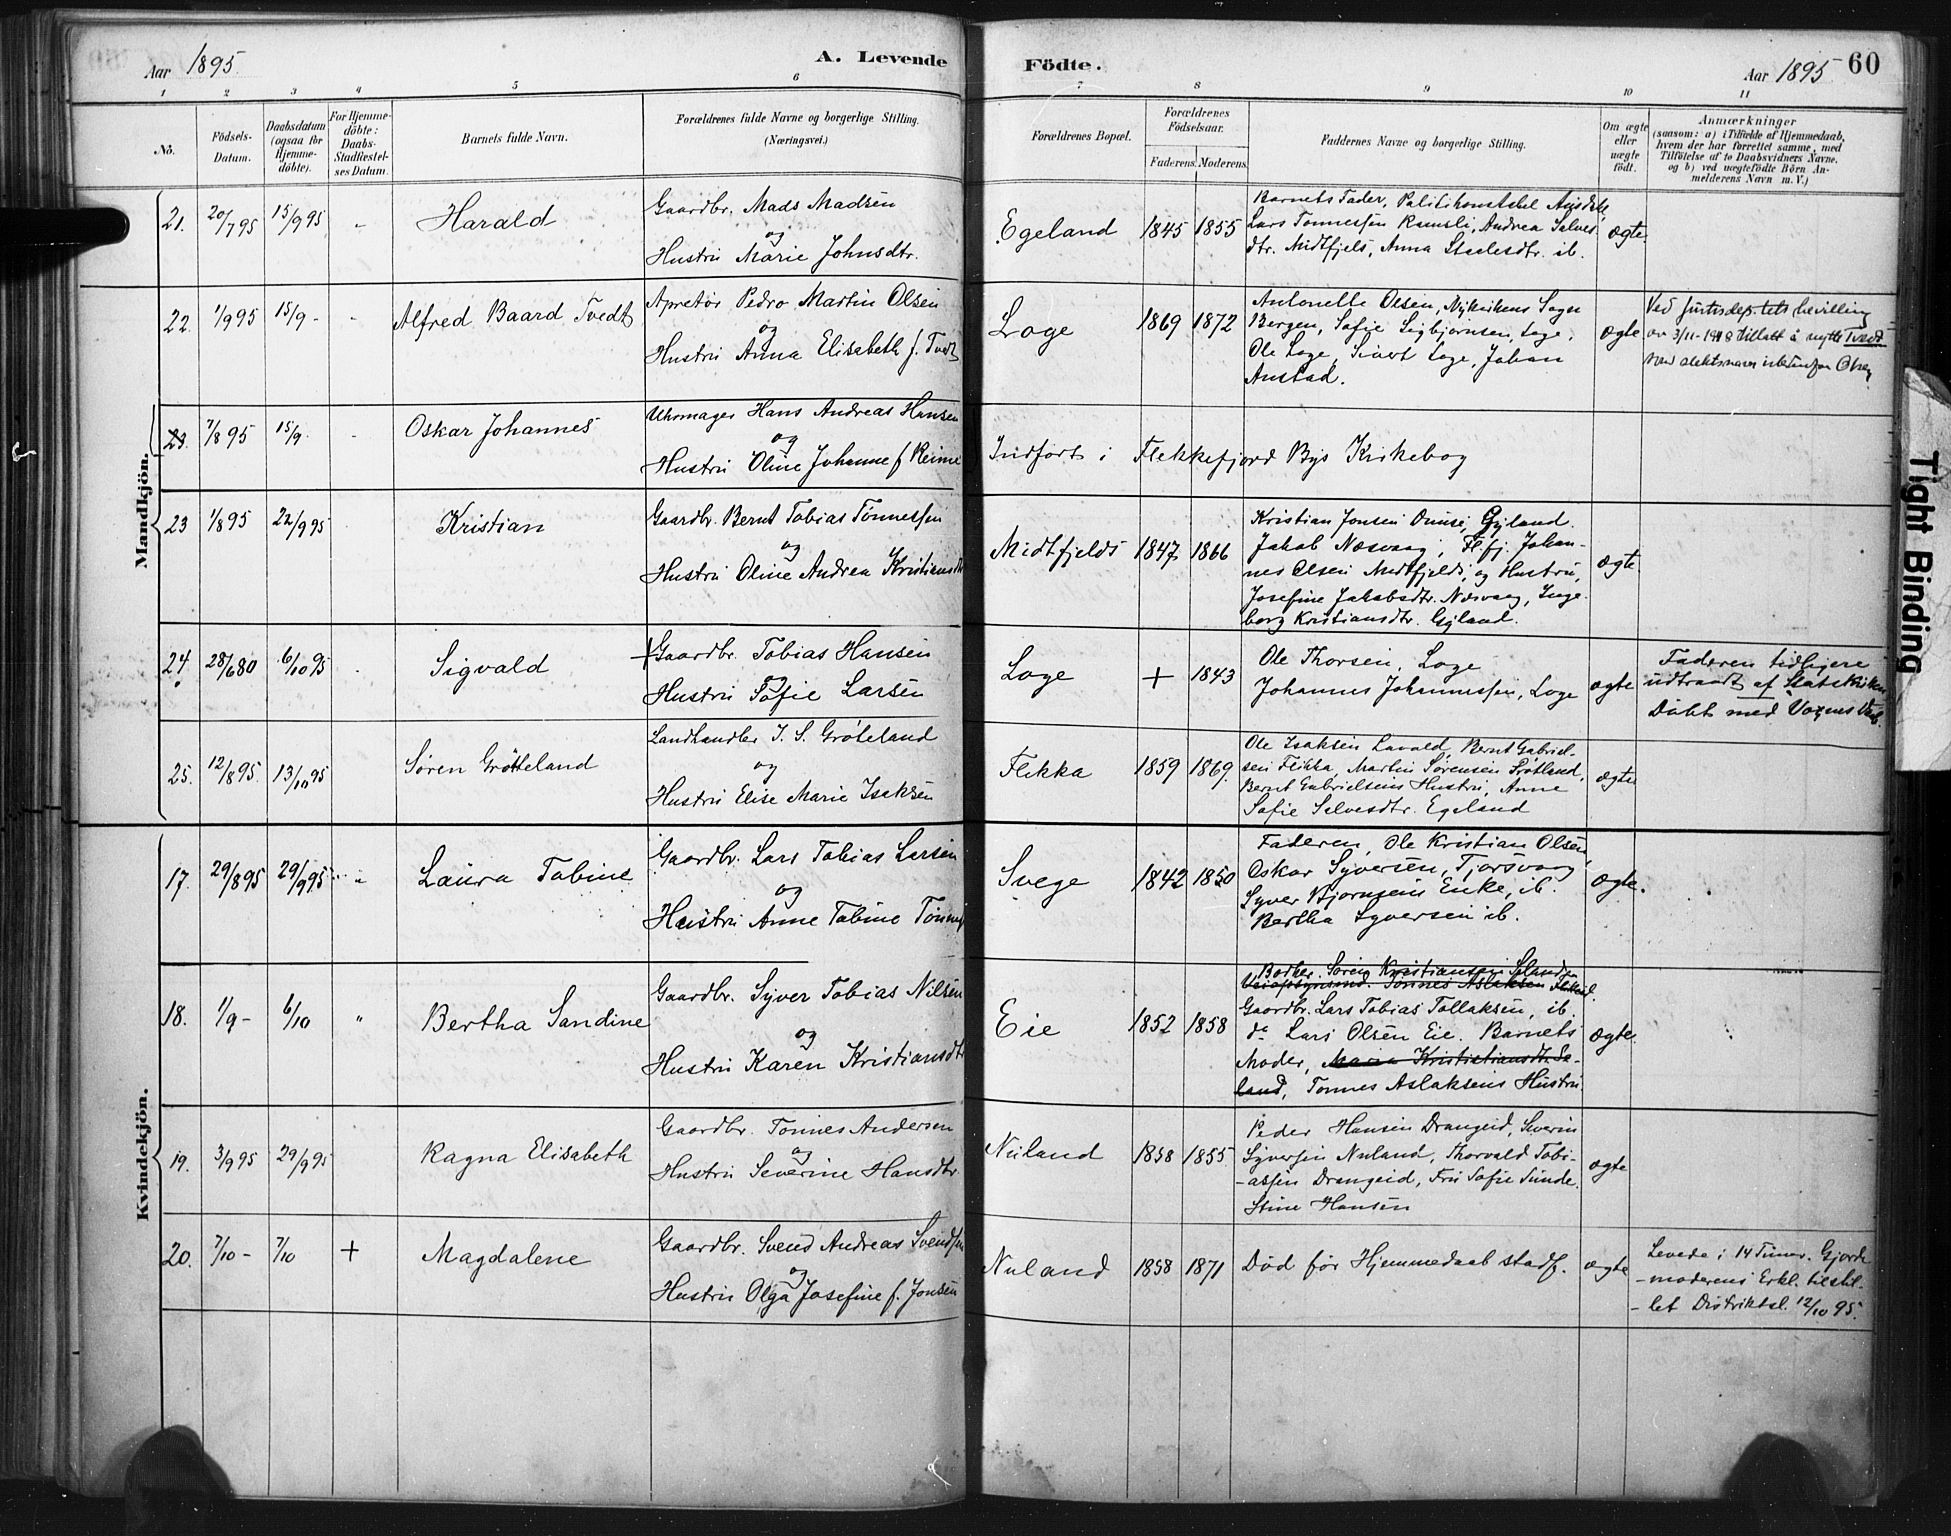 Aar 1895.
A. Levende
Födte.
Aar 1895
60
1 2 3 4 5 6 7 8 9 10 11
No.
Födsels-
Datum.
Daabsdatum
(ogsaa for
Hjemme-
döbte).
For Hjemme-
döbte:
Daabs-
Stadfæstel-
ses Datum.
Barnets fulde Navn.
Forældrenes fulde Navne og borgerlige Stilling.
(Næringsvei.)
Forældrenes Bopæl.
Forældrenes
Födselsaar.
Faderens. Moderens.
Faddernes Navne og borgerlige Stilling.
Om ægte
eller
uægte
födt.
Anmærkninger
(saasom: a) i Tilfælde af Hjemmedaab,
hvem der har forrettet samme, med
Tilföielse af to Daabsvidners Navne,
og b) ved uægtefödte Börn An-
melderens Navn m. V.)
Mandkjön.
21. 20/7 95 15/9 95 - Harald
Gaardbr. Mads Madsen
og
Hustru Marie Johnsdtr.
Egeland 1845 1855
Barnets Fader, Politikonstabel
Lars Tonnessen Ramsli, Andrea Salves-
dtr. Midtfjels, Anna ib.
ægte
22. 1/9 95 15/9 - - Alfred Baard Tvedt
Apretør Pedro Martin Olsen
og
Hustru Anna Elisabeth f. Tvedt
Loge 1869 1872
Antonette Olsen, Nykirkens Sogn
Bergen, Sofie Sigbjørnsen, Loge,
Ole Loge, Sivert Loge, Johan
Anstad.
ægte
Ved justisdep.tets bevilling
av 3/11-1918 tillatt å nytte Tvedt
som slektsnavn istedenfor Olsen
23. 7/8 95 15/9. - Oskar Johannes
Uhrmager Hans Andreas Hansen
og
Hustru Oline Johanne f Reime
Indført i Flekkefjord Bys Kirkebog
23 1/8 95 22/9 95 Kristian
Gaardbr. Bernt Tobias Tönnessen
og
Hustru Oline Andrea Kristiansdt
Midtfjelds 1847 1866
Kristian Jonsen Gyland.
Jakob Næsvaag, Flfj. Johan-
nes Olsen Midtfjelds, og Hustru,
Josefine Jakobsdtr. Næsvaag, Inge-
borg Kristiansdtr. Gyland.
ægte
24. 28/6 80 6/10 95 Sigvald
+ Gaardbr. Tobias Hansen
og
Hustru Sofie Larsen
Loge + 1843
Ole Thorsen, Loge
Johannes Johannessen, Loge
ægte
Faderen tidligere
udtraadt af Statskirken
Döbt med Voxnes Daab.
25. 12/8 95. 13/10 95 Søren Grötteland
Landhandler J. S. Gröteland
og
Hustru Elise Marie Isaksen
Flikka 1859 1869.
Ole Isaksen Lavold, Bernt Gabriel-
sen Flikka, Martin Sørensen Grøtland,
Bernt Gabrielsens Hustru, Anne
Sofie Salvesdtr. Egeland
ægte
Kvindekjön.
17. 29/8 95 29/9 95 " Laura Tobine
Gaardbr. Lars Tobias Larsen
og
Hustru Anne Tobine
Svege 1842 1850
Faderen, Ole Kristian Olsen,
Oskar Syversen, Tjørsvaag
Syver Bjørnsens Enke, ib.
Bertha Syversen ib.
ægte.
18. 1/9 - 6/10 " Bertha Sandine
Gaardbr. Syver Tobias Nilsen
og
Hustru Karen Kristiansdt
Eie 1852 1858
Bødker Søren Kristiansen Seland
Tønnes Aslaksen
Gaardbr. Lars Tobias Tollaksen, ib.
do Lars Olsen Eie. Barnets
Moder, Maria Kristiansdtr. Se-
land, Tonnes Aslaksens Hustru
ægte.
19. 3/9 95 29/9 95 Ragna Elisabeth
Gaardbr. Tonnes Andersen
og
Hustru Severine Hansdtr
Nuland 1858 1855
Peder Hansen Drangeid, Severin
Syversen Nuland, Thorvald Tobi-
-assen Drangeid, Fru Sofie Sunde.
Stine Hansen
ægte
20. 7/10 - 7/10 + Magdalene
Gaardbr. Svend Andreas Svendsen
og
Hustru Olga Josefine f. Jonsen
Nuland 1858 1871 Död för Hjemmedaab stadf. ægte
Levede i 14 Timer. Gjorde
-moderens Erkl. tilstil-
-let Distriktsl. 12/10 95.
Tight Binding